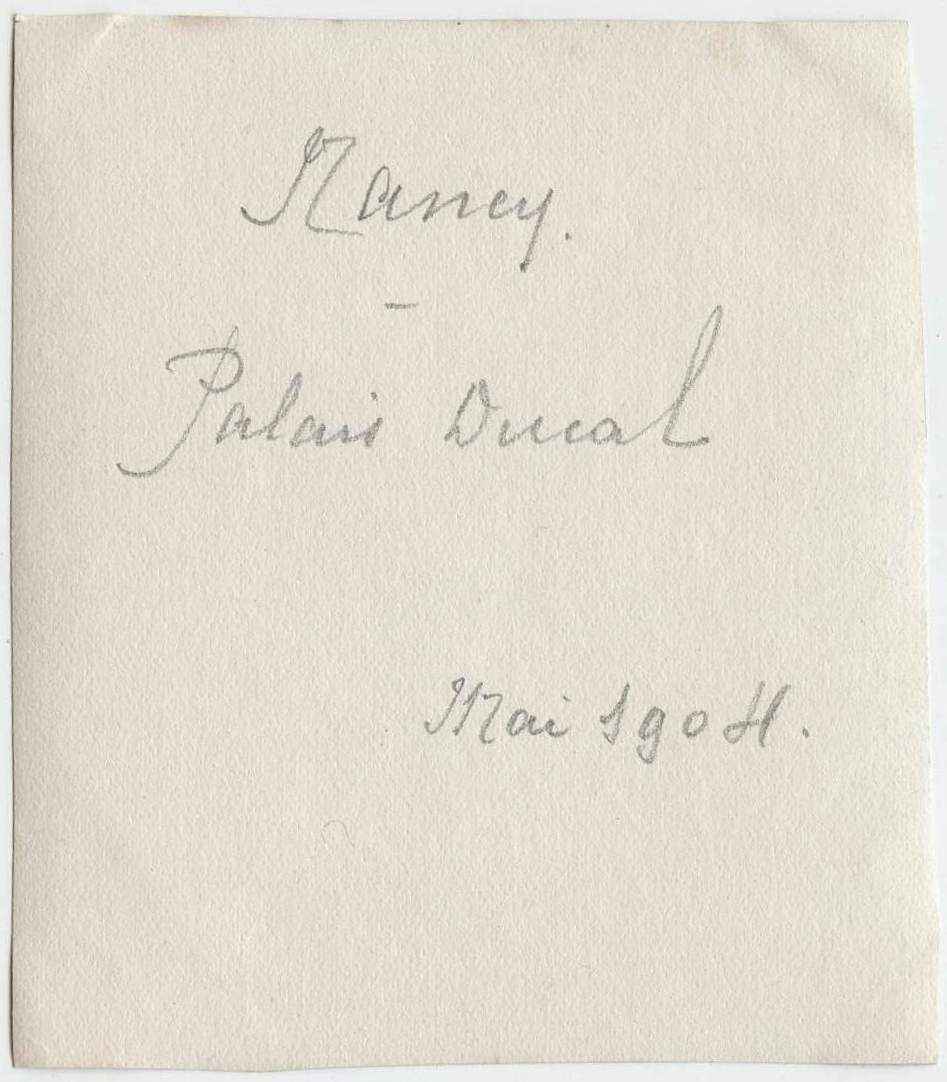 Nancy.
–
Palais Ducal
Mai 1904.